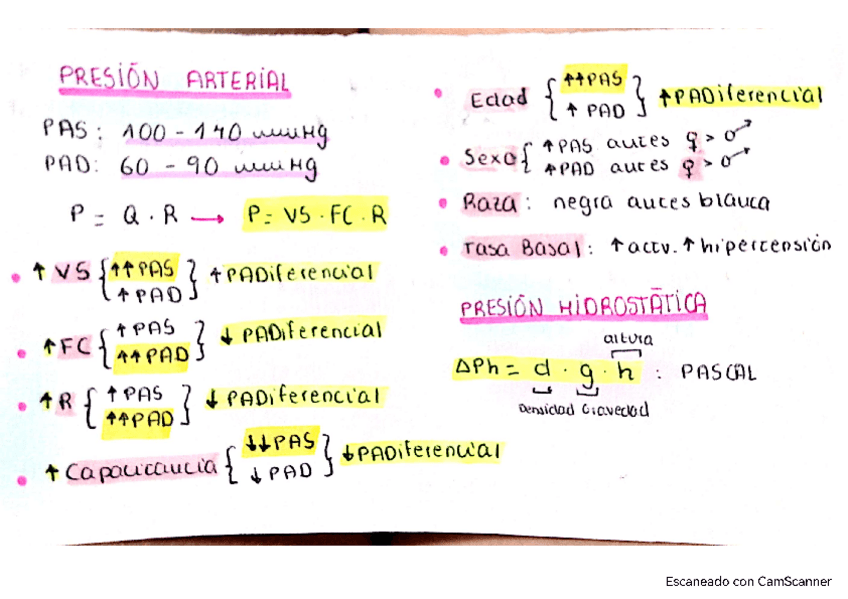 PRESIÓN ARTERIAL
PAS: 100 - 140 mmHg
PAD: 60 - 90 mmHg
P = Q · R → P = VS · FC · R
• ↑ VS { ↑↑PAS ↑PAD } ↑PADiferencial
• ↑FC { ↑PAS ↑↑PAD } ↓ PADiferencial
• ↑R { ↑PAS ↑↑PAD } ↓PADiferencial
• ↑ Capacitancia { ↓↓PAS ↓PAD } ↓PADiferencial
• Edad { ↑↑PAS ↑ PAD } ↑PADiferencial
• Sexo { ↑PAS antes ♀ > ♂ ↑PAD antes ♀ > ♂
• Raza: negra antes blanca
• Tasa Basal: ↑actv. ↑hipertensión
PRESIÓN HIDROSTÁTICA
altura
ΔPh = d · g · h : PASCAL
Densidad Gravedad
Escaneado con CamScanner